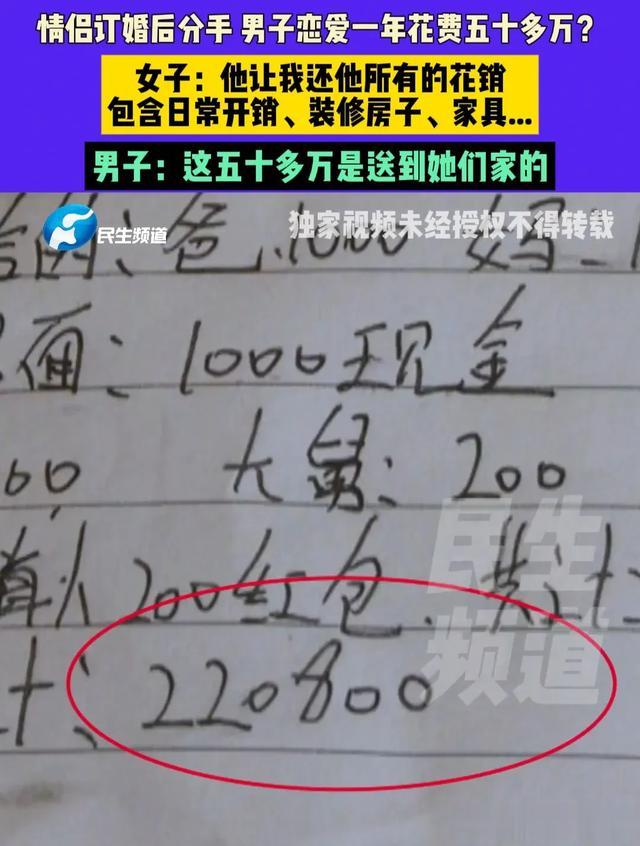 情侣订婚后分手 男子恋爱一年花费五十多万？
女子：他让我还他所有的花销
包含日常开销、装修房子、家具...
男子：这五十多万是送到她们家的
民生频道
独家视频未经授权不得转载
爸：1000 妈：
面：1000现金
00 大舅：200
200红包 共计：
计：220800
民生
频道